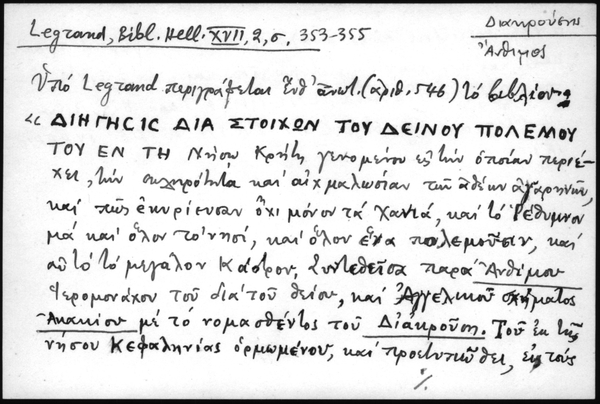 Legrand, Bibl. Hell. XVII, 2, σ. 353-355
Διακρούσης
Ἄνθιμος
Ὑπό Legrand περιγράφεται ἔνθ' ἀνωτ. (ἀριθ. 546) τό βιβλίον:
«ΔΙΗΓΗCΙC ΔΙΑ ΣΤΟΙΧΩΝ ΤΟΥ ΔΕΙΝΟΥ ΠΟΛΕΜΟΥ
ΤΟΥ ΕΝ ΤΗ Νήσω Κρήτη γενομένου εἰς τήν ὁποίαν περιέ-
χει, τήν σκληρότητα καί αἰχμαλωσίαν τῶν ἀθέων ἀγαρηνῶν,
καί πῶς ἐκυρίευσαν ὄχι μόνον τά Χανιά, καί τό Ῥέθυμνον
μά καί ὅλον τό νησί, καί ὅλον ἕνα πολεμοῦσιν, καί
αὐτό τό μεγάλον Κάστρον. Συντεθεῖσα παρά Ἀνθίμου
Ἱερομονάχου τοῦ διά τοῦ θείου, καί Ἀγγελικοῦ σχήματος
Ἀκακίου μέ τό νομασθέντος τοῦ Διακρούση. Τοῦ ἐκ τῆς
νήσου Κεφαληνίας ὁρμωμένου, καί προετυπώθει, εἰς τούς
./.